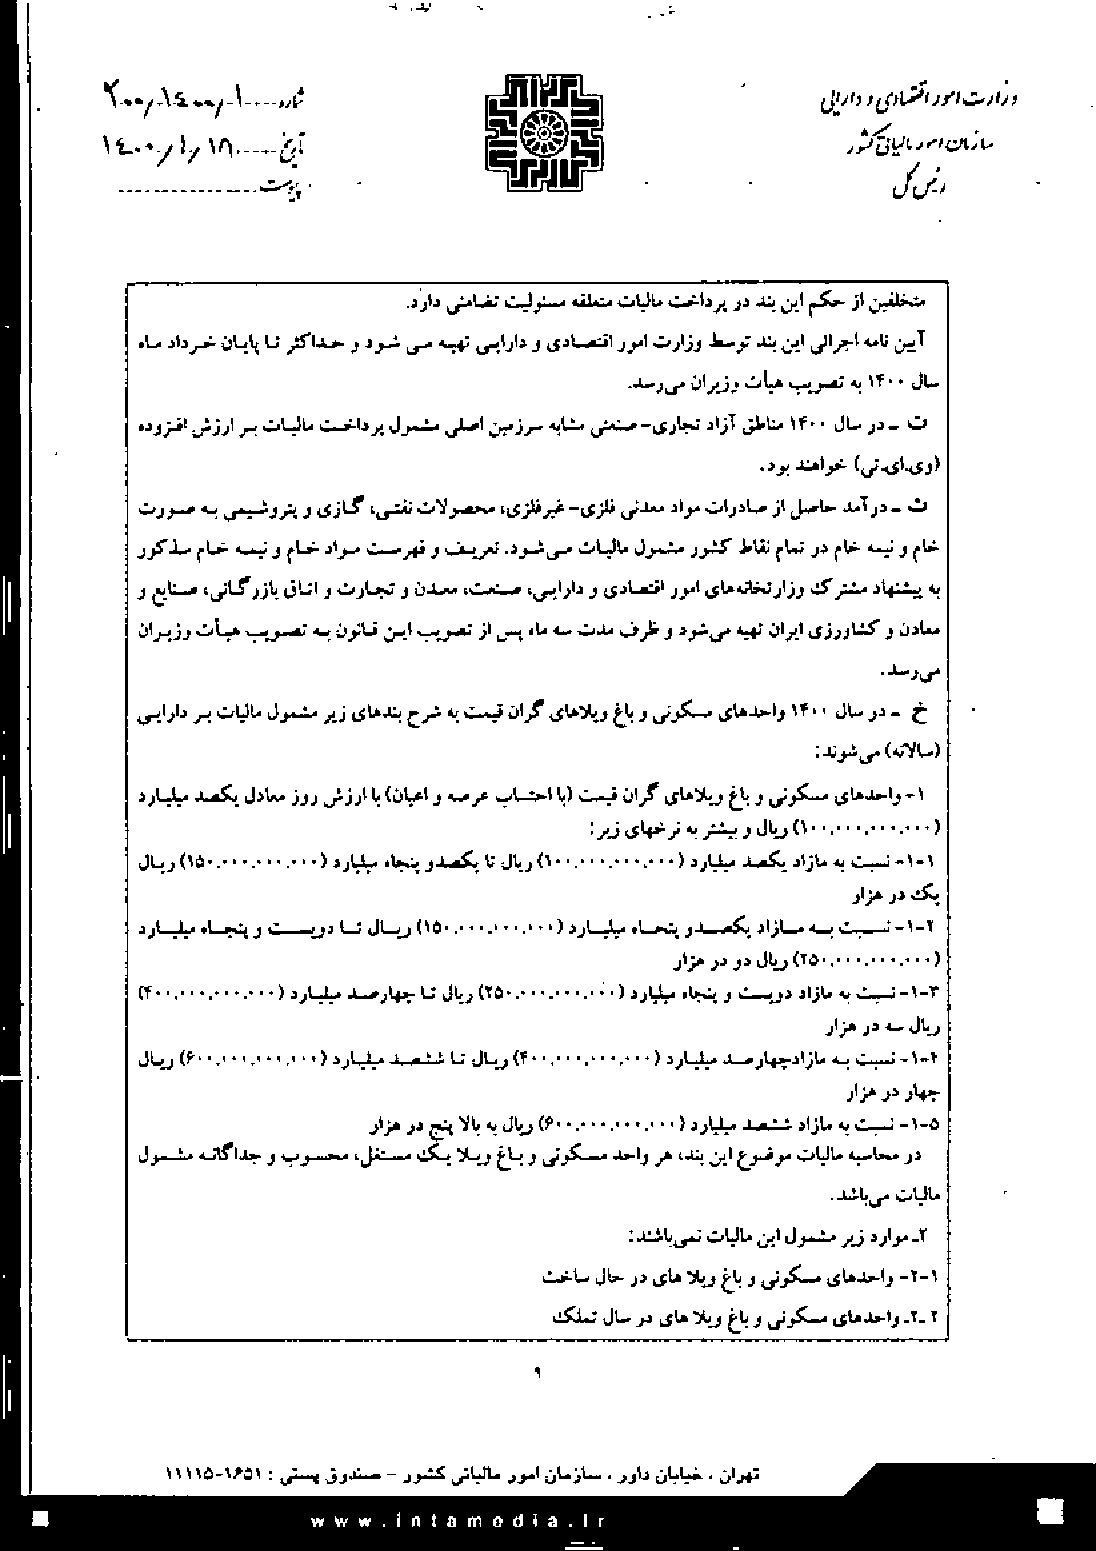 وزارت امور اقتصادی و دارایی
سازمان امور مالیاتی کشور
رئیس کل
شماره ۲۰۰/۱۴۰۰/۱
تاریخ ۱۴۰۰/۱/۱۸
پیوست
متخلفین از حکم این بند در پرداخت مالیات متعلقه مسئولیت تضامنی دارد.
آیین نامه اجرائی این بند توسط وزارت امور اقتصادی و دارایی تهیه می شود و حداکثر تا پایان خرداد ماه
سال ۱۴۰۰ به تصویب هیأت وزیران می‌رسد.
ت - در سال ۱۴۰۰ مناطق آزاد تجاری- صنعتی مشابه سرزمین اصلی مشمول پرداخت مالیات بر ارزش افزوده
(وی.ای.تی) خواهند بود.
ث - درآمد حاصل از صادرات مواد معدنی فلزی- غیرفلزی، محصولات نفتی، گازی و پتروشیمی به صورت
خام و نیمه خام در تمام نقاط کشور مشمول مالیات می‌شود. تعریف و فهرست مواد خام و نیمه خام مذکور
به پیشنهاد مشترک وزارتخانه‌های امور اقتصادی و دارایی، صنعت، معدن و تجارت و اتاق بازرگانی، صنایع و
معادن و کشاورزی ایران تهیه می‌شود و ظرف مدت سه ماه پس از تصویب این قانون به تصویب هیأت وزیران
می‌رسد.
خ - در سال ۱۴۰۰ واحدهای مسکونی و باغ ویلاهای گران قیمت به شرح بندهای زیر مشمول مالیات بر دارایی
(سالانه) می‌شوند:
۱- واحدهای مسکونی و باغ ویلاهای گران قیمت (با احتساب عرصه و اعیان) با ارزش روز معادل یکصد میلیارد
(۱۰۰.۰۰۰.۰۰۰.۰۰۰) ریال و بیشتر به نرخهای زیر:
۱-۱- نسبت به مازاد یکصد میلیارد (۱۰۰.۰۰۰.۰۰۰.۰۰۰) ریال تا یکصدو پنجاه میلیارد (۱۵۰.۰۰۰.۰۰۰.۰۰۰) ریال
یک در هزار
۱-۲- نسبت به مازاد یکصدو پنجاه میلیارد (۱۵۰.۰۰۰.۰۰۰.۰۰۰) ریال تا دویست و پنجاه میلیارد
(۲۵۰.۰۰۰.۰۰۰.۰۰۰) ریال دو در هزار
۱-۳- نسبت به مازاد دویست و پنجاه میلیارد (۲۵۰.۰۰۰.۰۰۰.۰۰۰) ریال تا چهارصد میلیارد (۴۰۰.۰۰۰.۰۰۰.۰۰۰)
ریال سه در هزار
۱-۴- نسبت به مازادچهارصد میلیارد (۴۰۰.۰۰۰.۰۰۰.۰۰۰) ریال تا ششصد میلیارد (۶۰۰.۰۰۰.۰۰۰.۰۰۰) ریال
چهار در هزار
۱-۵- نسبت به مازاد ششصد میلیارد (۶۰۰.۰۰۰.۰۰۰.۰۰۰) ریال به بالا پنج در هزار
در محاسبه مالیات موضوع این بند، هر واحد مسکونی و باغ ویلا یک مستغل، محسوب و جداگانه مشمول
مالیات می‌باشد.
۲ـ موارد زیر مشمول این مالیات نمی‌باشند:
۲-۱- واحدهای مسکونی و باغ ویلا های در حال ساخت
۲-۲ـ واحدهای مسکونی و باغ ویلا های در سال تملک
۹
تهران ، خیابان داور ، سازمان امور مالیاتی کشور - صندوق پستی : ۱۶۵۱-۱۱۱۱۵
www.intamedia.ir